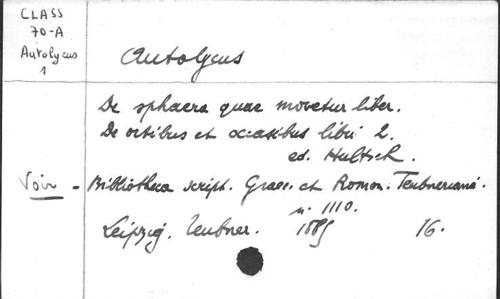 CLASS
70-A
Autolycus
1
Autolycus
De sphaera quae movetur liber.
De ortibus et occasibus libri 2.
ed. Hultsch.
Voir - Bibliotheca script. Graec. et Roman. Teubneriana.
n. 1110.
Leipzig. Teubner. 1885 16.